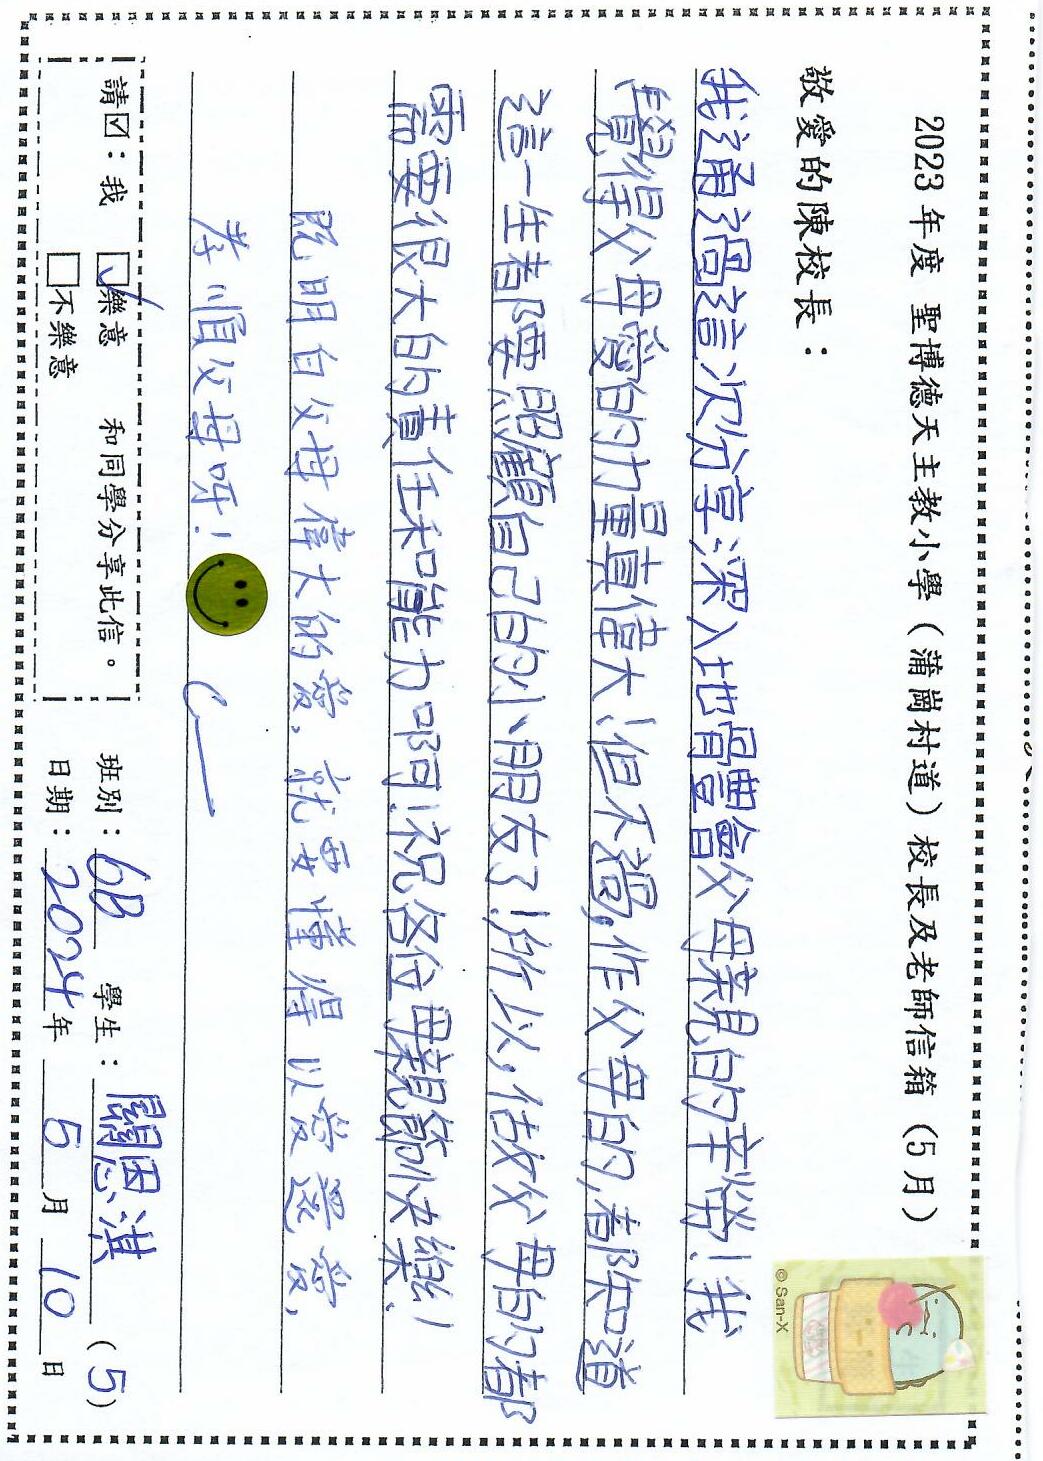 2023年度 聖博德天主教小學(蒲崗村道)校長及老師信箱 (5月)
敬愛的陳校長：
我通過這次分享深入地體會父母親的辛勞！我
覺得父母愛的力量真偉大！但不過，作父母的，都知道
這一生都要照顧自己的小朋友了！所以，估故父母的都
需要很大的責任和能力啊！祝各位母親節快樂！
既明白父母偉大的愛，就要懂得以愛還愛，
孝順父母呀！
請☑：我 ☑樂意 和同學分享此信。
□不樂意
班別：6B 學生：關恩淇 (5)
日期：2024年 5月 10日
© San-X